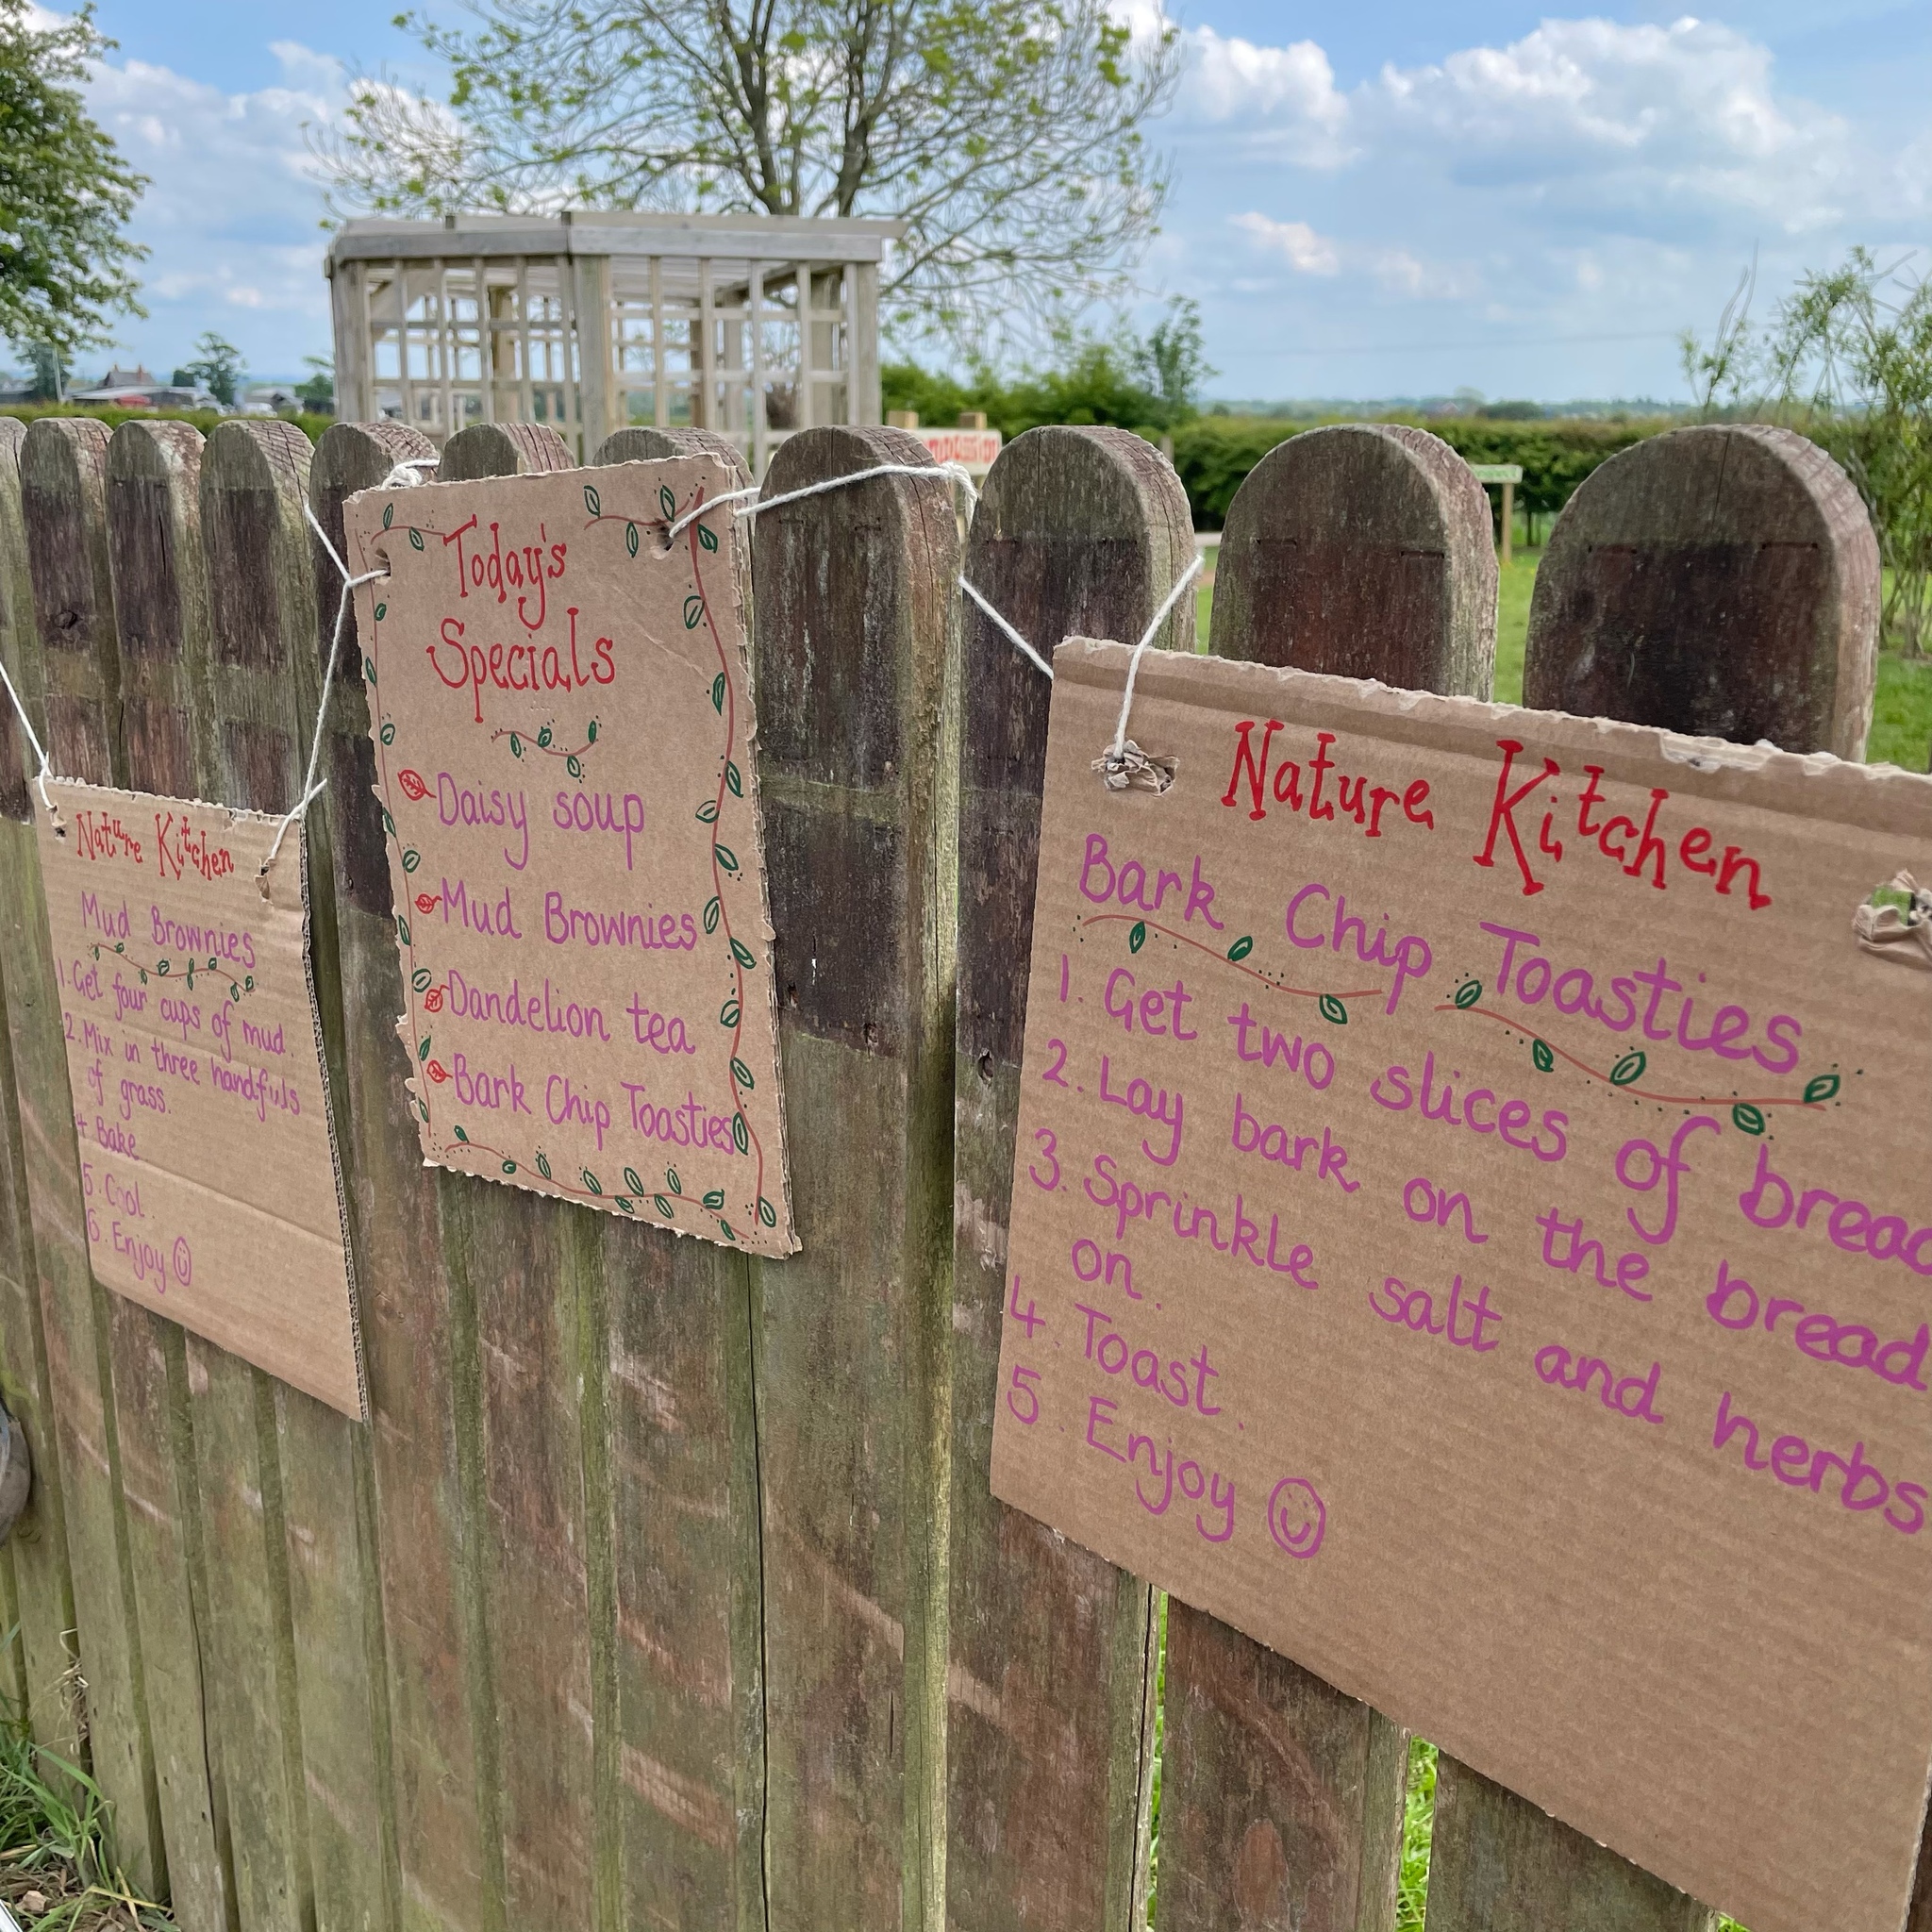 Nature Kitchen
Mud Brownies
1. Get four cups of mud.
2. Mix in three handfuls
of grass.
4 Bake
5. Cool.
6. Enjoy
Today's
Specials
Daisy soup
Mud Brownies
Dandelion tea
Bark Chip Toasties
Nature Kitchen
Bark Chip Toasties
1. Get two slices of bread
2. Lay bark on the bread
3. Sprinkle salt and herbs
on.
4 Toast.
5. Enjoy